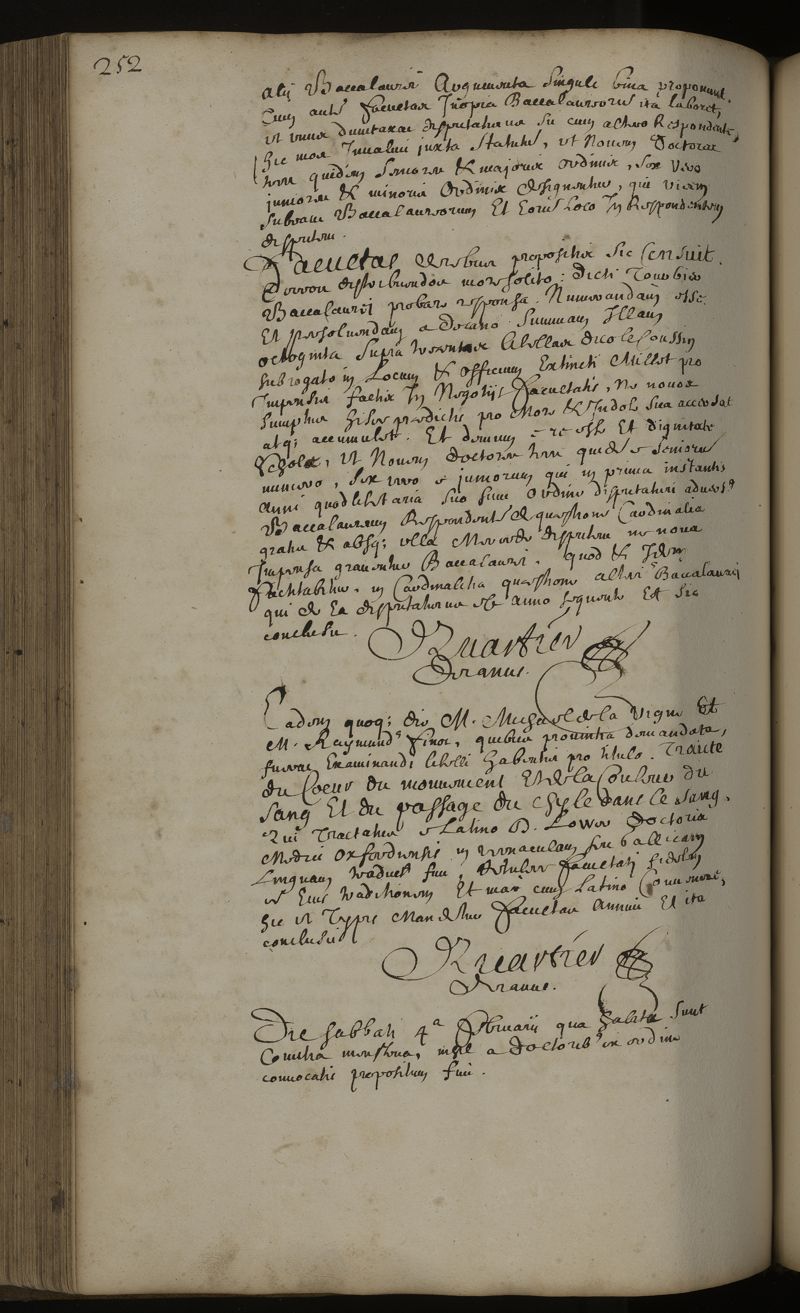 252
alij Baccalaurei Argumenta singuli bina proponunt.
Cum autem Facultas Inopia Baccalaureorum ita laboret,
ut unus dumtaxat disputaturus sit cum altero Respondente,
hic mos Invaluit juxta statuta, ut Novem Doctores
tres quidem seniores & majoris ordinis, sex vero
juniores & minoris Ordinis designentur, qui vicem
subeant Baccalaureorum Et Eorum Loco In Respondentem
disputent.
Facultas de rebus propositis sic Censuit.
distribuendos more solito: dicti
Baccalaurei probare responsa. Numerandam esse
Et persolvendam a decano summam Illam
octoginta supra
subrogato in Locum & officium Extincti Millet pro
Impensis factis In Negotijs Facultatis, ne novos
sumptus hisce predictis pro More & Indole sua accedat
atque accumulet. Et demum e re esse Et dignitate
Scholae, ut Novem doctores tres quidem e seniorum
numero, sex vero e juniorum qui in prima instantis
anni quodlibetaria suo sint Ordine disputaturi adversus
Baccalaureum Respondentem de quaestione Cardinalia
gratis & absque ulla Mercede disputent ne nova
Impensa graventur Baccalaurei. quod & Idem
Factitabitur, in Cardinalitia quaestione alterius Baccalaurei
qui de Ea disputaturus est anno sequente Et sic
conclusit.
Quartier
Decanus.
Eadem quoque die M. Michael de la Vigne Et
M. Raymundus Finot, quibus provincia demandata
fuerat Examinandi libelli habentis pro titulo. Traité
du Coeur du mouvement Et de la Couleur du
sang Et du passage du Chyle dans le sang,
Qui Tractatus e Latino D. Lower Doctoris
Medici Oxfordiensis in vernaculam seu Gallicam
Linguam traductus fuit, retulere Facultati fidelem
esse Eius traditionem Et cum Latino Convenire,
hic ut Typis Mandetur Facultas Annuit Et ita
conclusit
Quartier
Decanus.
Die sabbati 4a Februarii qua habita sunt
Comitia menstrua, in quibus a doctoribus ex ordine
convocatis propositum fuit.